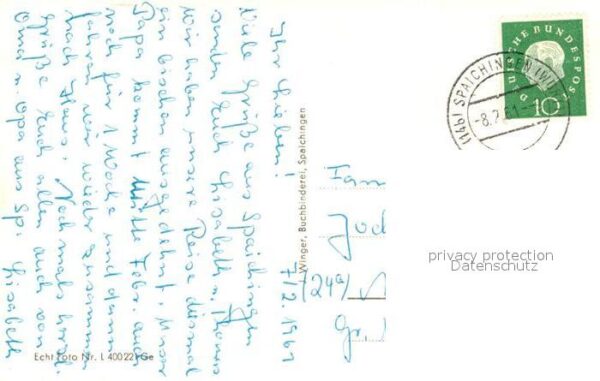 7/2.1961
Ihr Lieben!
Viele Grüße aus Spaichingen
senden Euch Lisabeth u. Thomas
Wir haben unsere Reise diesmal
ein bischen ausgedehnt. Unser
Papa kommt Mitte Febr. auch
noch für 1 Woche und dann
fahren wir wieder zusammen
nach Haus. Nochmals herzl.
Grüße Euch allen auch von
Oma u. Opa aus Sp. Lisabeth
Winger, Buchbinderei, Spaichingen
Echt Foto Nr. L 40022 Ge
DEUTSCHE BUNDESPOST
10
(14b) SPAICHINGEN (W)
-8.2.61
Fam
Jod
(24a)
Gr.
privacy protection
Datenschutz